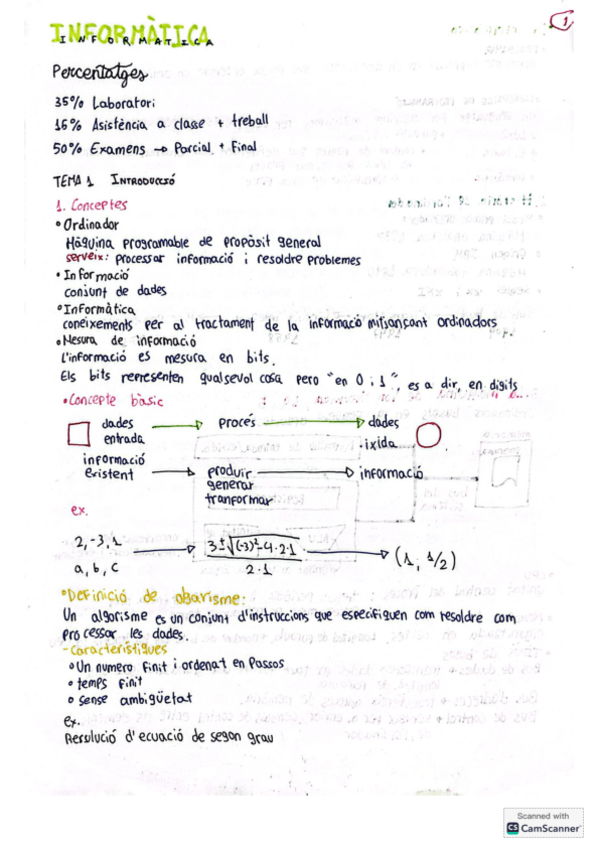 INFORMÀTICA
INFORMATICA
1
Percentatges
35% Laboratori
15% Asistència a classe + treball
50% Examens → Parcial + Final
TEMA 1 INTRODUCCIÓ
1. Conceptes
• Ordinador
Màquina programable de propòsit general
serveix: processar informació i resoldre problemes
• Informació
conjunt de dades
• Informàtica
coneixements per al tractament de la informació mitjançant ordinadors
• Mesura de informació
L'informació es mesura en bits.
Els bits representen qualsevol cosa pero "en 0 i 1", es a dir, en digits
• Concepte bàsic
dades → procés → dades
entrada ixida
informació → produir → informació
existent generar
tranformar
ex.
2,-3,1 → 3±√(-3)²-4·2·1 → (1, 1/2)
a, b, c 2·1
• Definició de algorisme:
Un algorisme es un conjunt d'instruccions que especifiquen com resoldre com
processar les dades.
- Característiques
• Un numero finit i ordenat en Passos
• temps finit
• sense ambigüetat
ex.
Resolució d'ecuació de segon grau
Scanned with
CS CamScanner